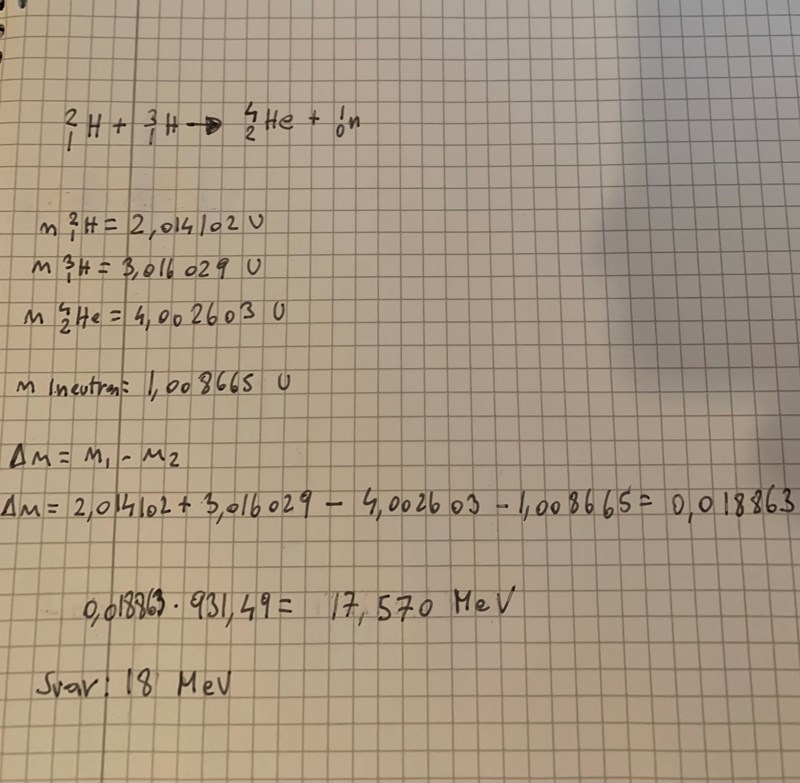 ²₁H + ³₁H → ⁴₂He + ¹₀n
m ²₁H = 2,014102 U
m ³₁H = 3,016029 U
m ⁴₂He = 4,002603 U
m 1neutron = 1,008665 U
Δm = m₁ - m₂
Δm = 2,014102 + 3,016029 - 4,002603 - 1,008665 = 0,018863
0,018863 · 931,49 = 17,570 MeV
Svar: 18 MeV